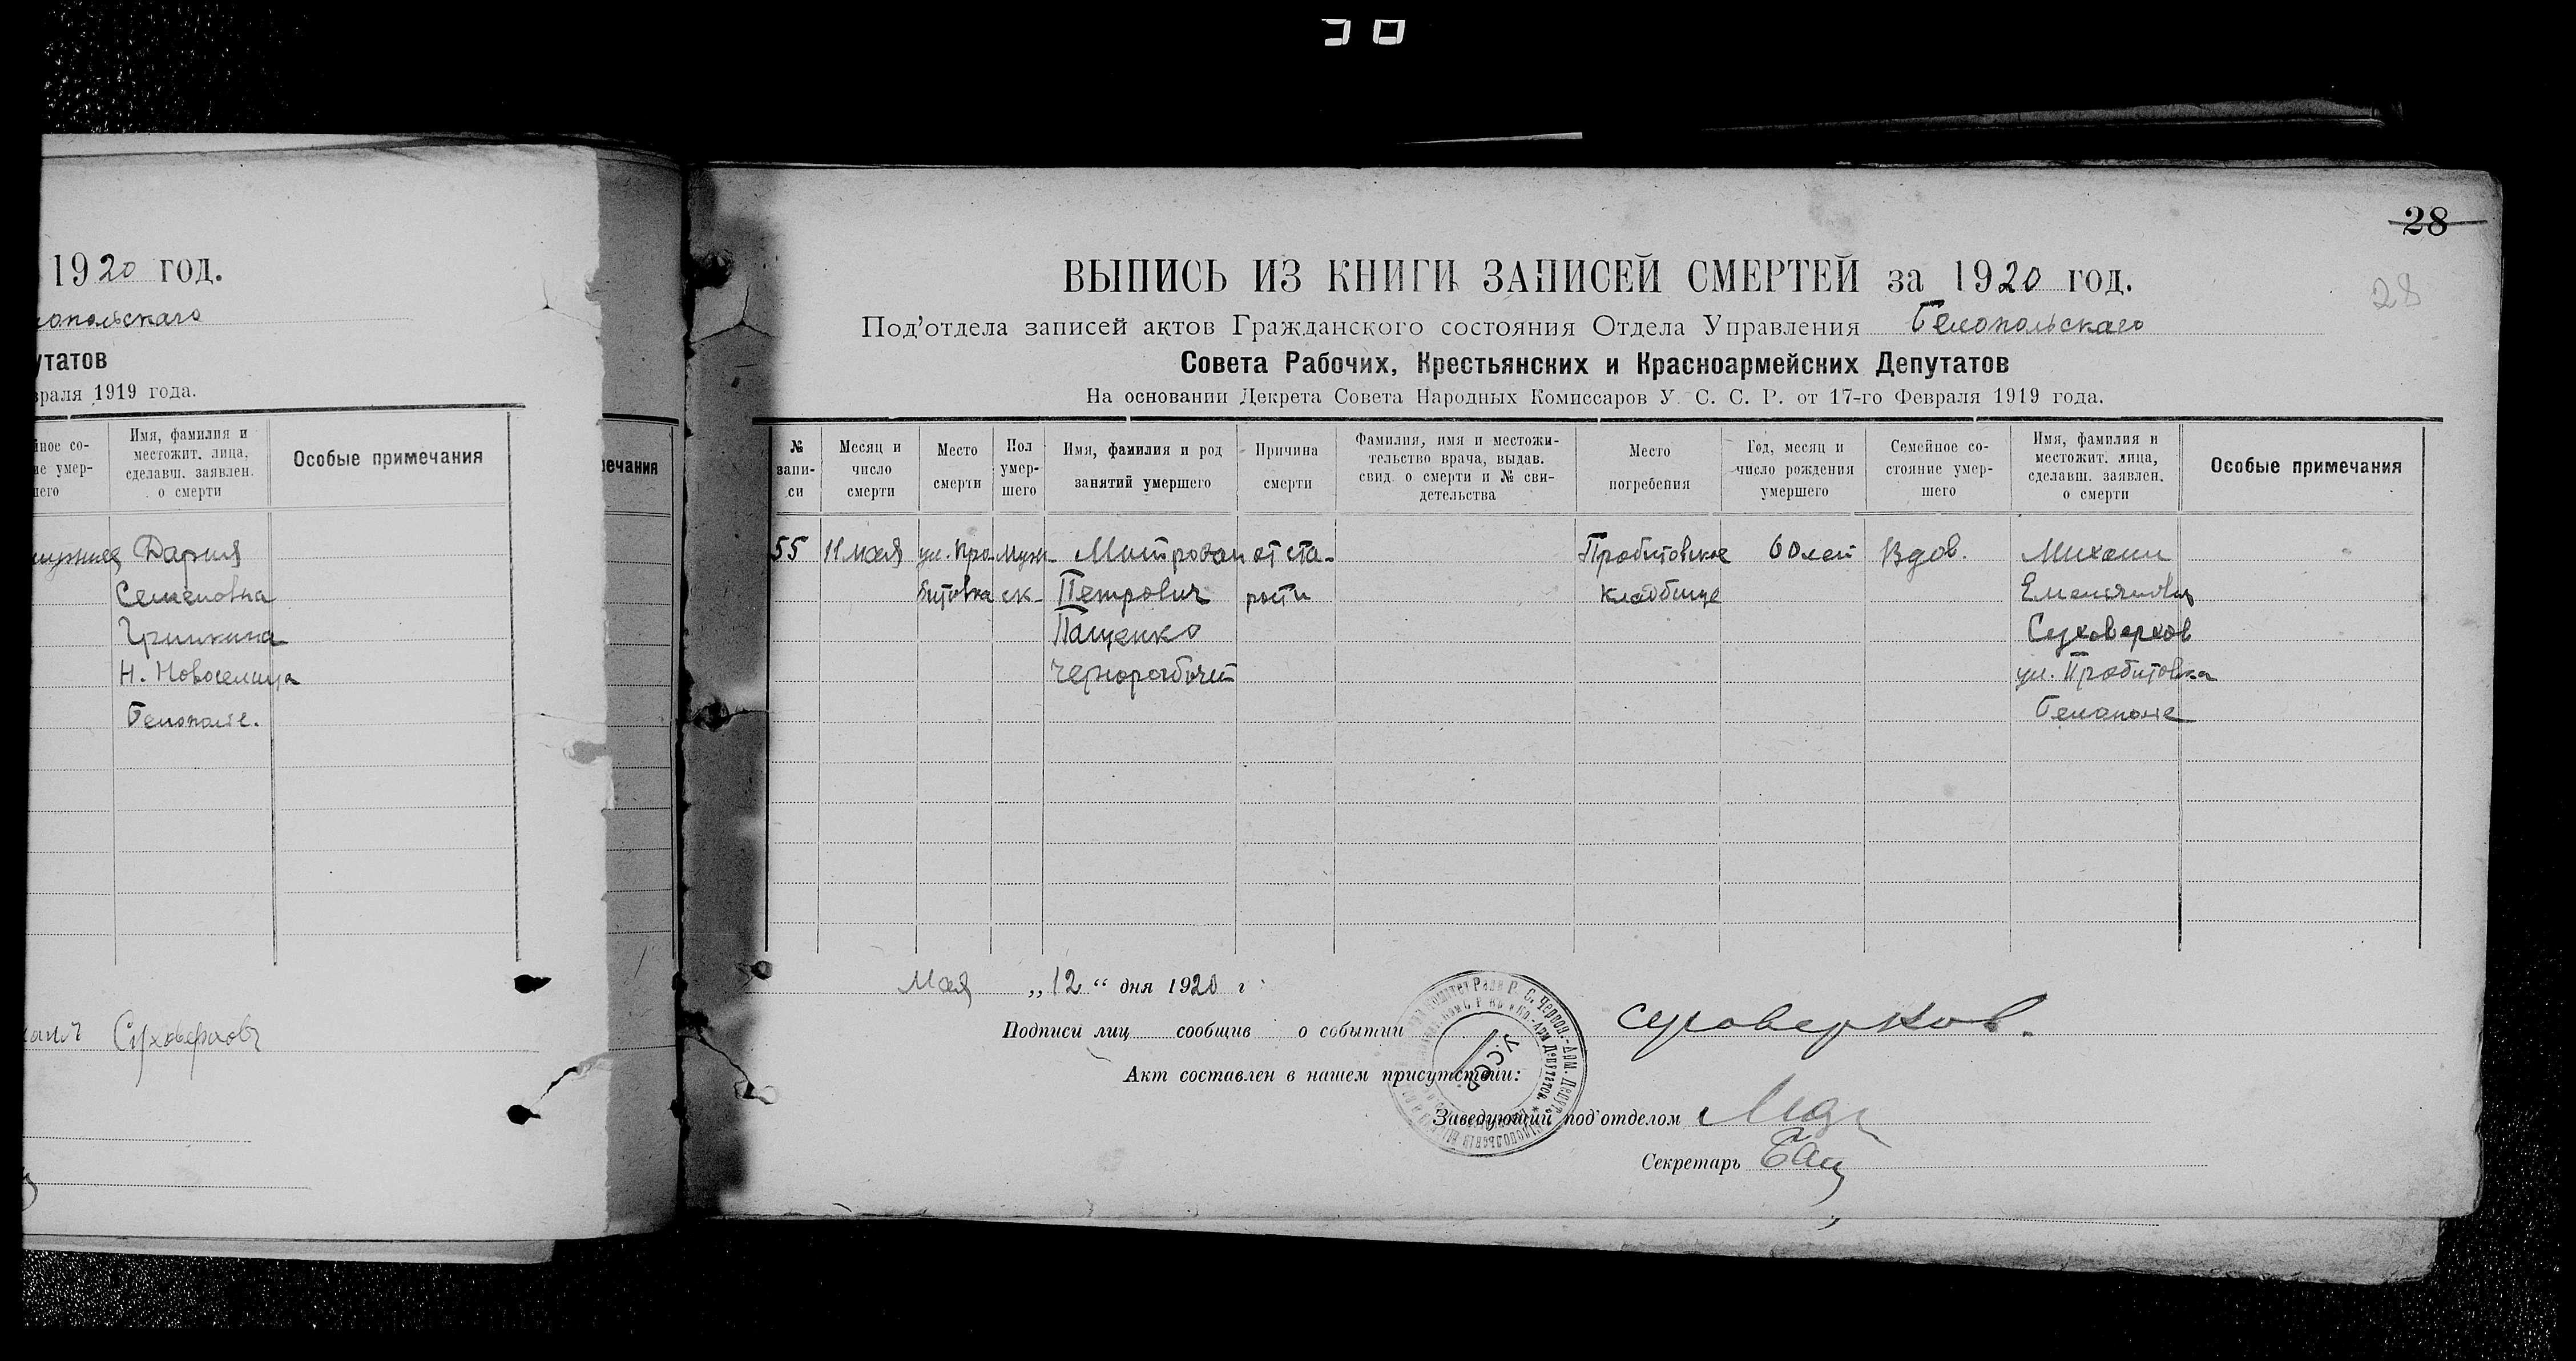 1920 год.
опольскаго
утатов
враля 1919 года.
Имя, фамилия и
местожит. лица,
сделавш. заявлен.
о смерти
Особые примечания
ное со-
ие умер-
шего
ечания
Дария
Семеновна
Гришкина
Н. Новоселица
Белополье.
Суховерховъ
28
28
ВЫПИСЬ ИЗ КНИГИ ЗАПИСЕЙ СМЕРТЕЙ за 1920 год.
Под'отдела записей актов Гражданского состояния Отдела Управления Белопольскаго
Совета Рабочих, Крестьянских и Красноармейских Депутатов
На основании Декрета Совета Народных Комиссаров У. С. С. Р. от 17-го Февраля 1919 года.
№ запи-си
Месяц и число смерти
Место смерти
Пол умер-шего
Имя, фамилия и род занятий умершего
Причина смерти
Фамилия, имя и местожи-тельство врача, выдав. свид. о смерти и № сви-детельства
Место погребения
Год, месяц и число рождения умершего
Семейное со-стояние умер-шего
Имя, фамилия и местожит. лица, сделавш. заявлен. о смерти
Особые примечания
55 11 мая ул. Пра- Муж- Митрофан от ста- Прабитовское 60 лет Вдов. Михаил
битовка ск- Петрович рости кладбище Емельянович
Пащенко Суховерхов
Чернорабочий ул. Прабитовка
Белополье
Мая „12“ дня 1920 г.
Подписи лиц сообщив о событии Суховерхов.
Акт составлен в нашем присутствии:
У.С.С.Р.
Заведующий под'отделом
Секретарь